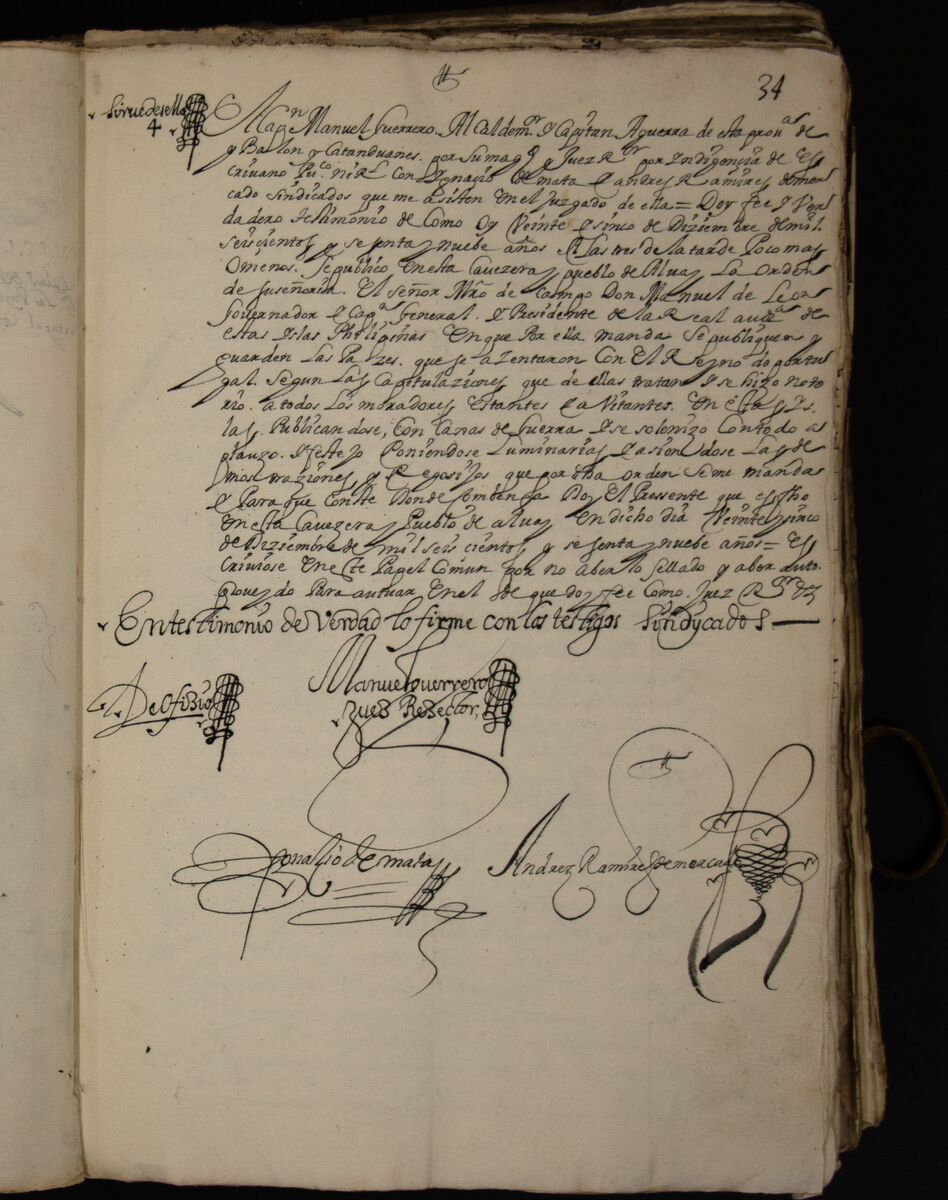 34
Sirue de sello
4
Cap.n Manuel Guerrero. Alcaldem.r y Capitan Aguerra de esta prou.a de
y Baslon y Catanduanes. por Su mag.d y Juez R.or por Indigençia de Es
criuano Pu.co ni R.l Con Ygnaçio de mata y andres Ramires demer
cado sindicados que me asisten en el Juzgado de ella = Doy fee y Verd
dadero testimonio de Como oy Veinte y sinco de Diziembre de mil
seisçientos y sesenta y nuebe años A las tres de la tarde Poco mas
Omenos. Se publico en esta Cauezera y pueblo de Aluay La Orden
de su señoria. El señor Mro de Campo Don Manuel de Leon
Gouernador y Cap.n General. y Presidente de la Real aud.a de
estas Yslas Philipinas en que Por ella manda Se publiquen y
guarden Las Pazes. que se azentaron Con El Reyno de portu
gal. Segun Las Capitulaziones que de ellas tratan y se hizo noto
rio. a todos Los moradores estantes y auitantes. en esta ys
las. Publicandose, Con Caxas de Guerra y se solenizo Con todo a
plauzo. y festejo Poniendose Luminarias y asiendose Las de
mostraziones y Regosijos que por dha orden Se me manda
y Para que Conste Donde Conbenga Doy El Pressente que es fho
en esta Cauezera y Pueblo de aluay en dicho dia Veinte y sinco
de Diziembre de mil seis çientos y sesenta y nuebe años = Es
criuiose en este Papel Comun por no aber lo sellado y aber auto
proueydo Para autuar en el de que doy fee Como Juez R.or
En testimonio de Verdad lo firme con los testigos Sindycados
De ofizio
Manuel Guerrero
Juez Resector
Ygnasio de mata
Andrez Ramires de mercado